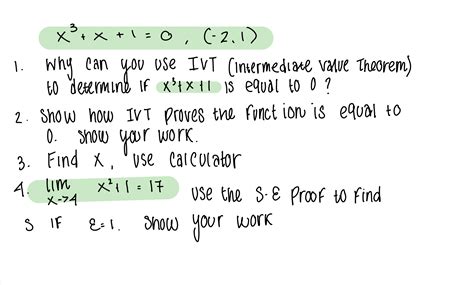 x³ + x + 1 = 0 , (-2,1)
1. Why can you use IVT (intermediate value Theorem)
to determine if x³+x+1 is equal to 0 ?
2. Show how IVT proves the function is equal to
0. Show your work.
3. Find x, use calculator
4. lim x→4 x²+1 = 17 use the S-ε proof to find
S IF ε=1. Show your work